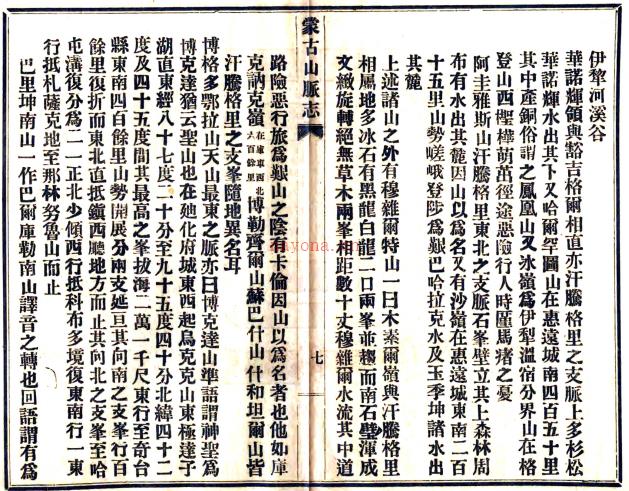 伊犂河溪谷
華諾輝領與豁吉格爾相直亦汗騰格里之支脈上多杉松
華諾輝水出其下又哈爾罕圖山在惠遠城南四百五十里
其中產銅俗謂之鳳凰山又冰嶺爲伊犂溫宿分界山在格
登山西樫樺萌茁徑途惡險行人時罹馬瘏之憂
阿圭雅斯山汗騰格里東北之支脈石峯壁立其上森林周
布有水出其麓因山以爲名又有沙嶺在惠遠城東南二百
十五里山勢嵯峨登陟爲艱巴哈拉克水及玉季坤諸水出
其麓
上述諸山之外有穆雜爾特山一曰木素爾嶺與汗騰格里
相屬地多冰石有黑龍白龍二口兩峯並趨而南石璧渾成
文緻旋轉絕無草木兩峯相距數十丈穆雜爾水流其中道
蒙古山脈志
七
路險惡行旅爲艱山之陰有卡倫因山以爲名者也他如庫
克訥克嶺在庫車西北六百餘里博勒齊爾山蘇巴什山什和坦爾山皆
汗騰格里之支峯隨地異名耳
博格多鄂拉山天山最東之脈亦曰博克達山準語謂神聖爲
博克達猶云聖山也在廸化府城東西起烏克克山東極達子
湖直東經八十七度二十分至九十五度四十分北緯四十二
度及四十五度間其最高之峯拔海二萬一千尺東行至奇台
縣東南四百餘里山勢開展分兩支延亘其向南之支峯行百
餘里復折而東北直抵鎭西廳地方而止其向北之支峯至哈
屯溝復分爲二一正北少傾西行抵科布多境復東南行一東
行抵札薩克地至那林努魯山而止
巴里坤南山一作巴爾庫勒南山譯音之轉也回語謂有爲
anyona.net